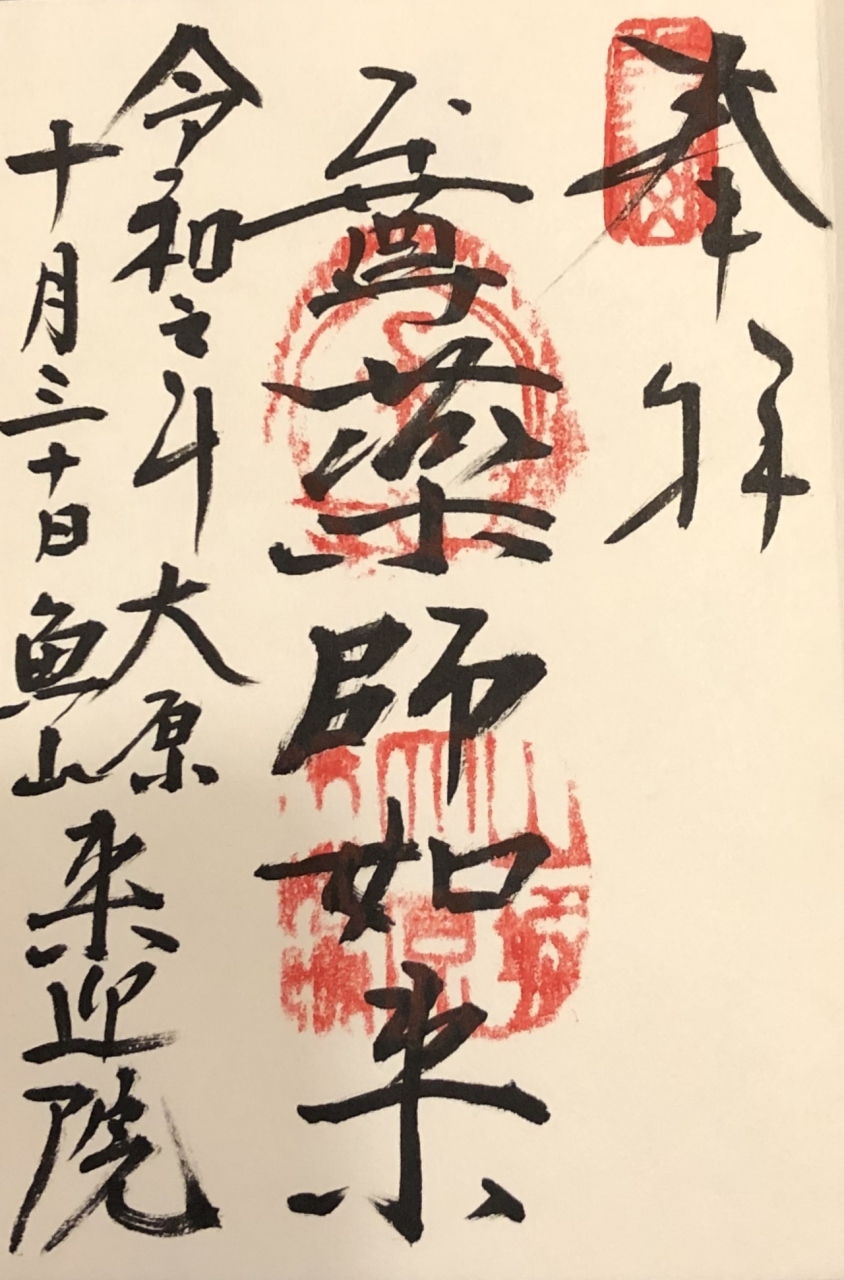 奉拝
尊薬師如来
令和元年 大原
十月三十日 魚山
来迎院